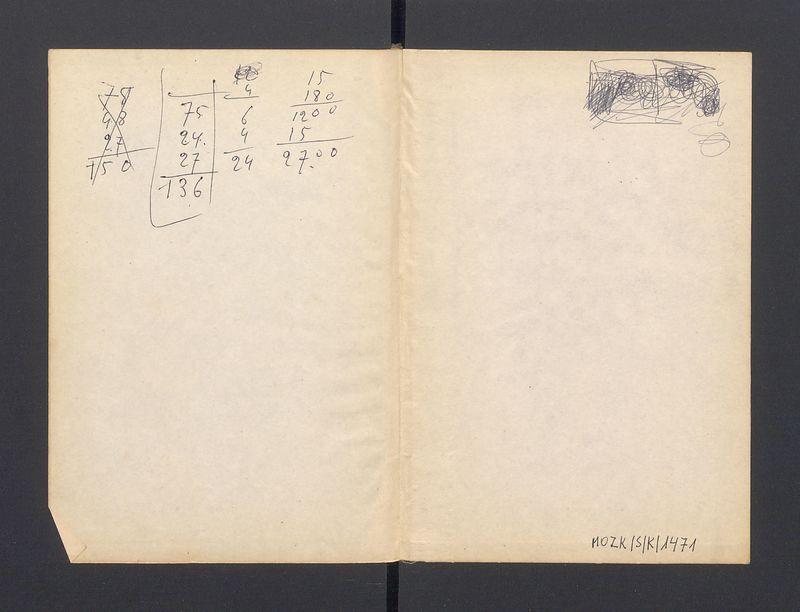 78
48
27
150
75
24.
27
136
4
6
4
24
15
180
1200
15
27.00
MOZK/S/K/1471